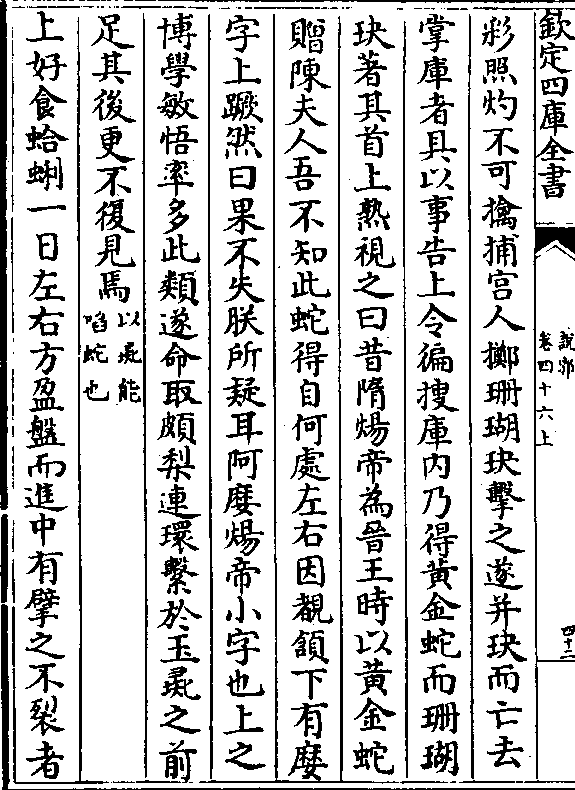 欽定四庫全書
說郛
卷四十六上
四十二
彩照灼不可擒捕宫人擲珊瑚玦擊之遂并玦而亡去
掌庫者具以事告上令徧搜庫内乃得黄金蛇而珊瑚
玦著其首上熟視之曰昔隋煬帝為晉王時以黄金蛇
贈陳夫人吾不知此蛇得自何處左右因覩頷下有麼
字上蹶然曰果不失朕所疑耳阿麼煬帝小字也上之
博學敏悟率多此類遂命取頗梨連環繫於玉彘之前
足其後更不復見焉以彘能
啗蛇也
上好食蛤蜊一日左右方盈盤而進中有擘之不裂者